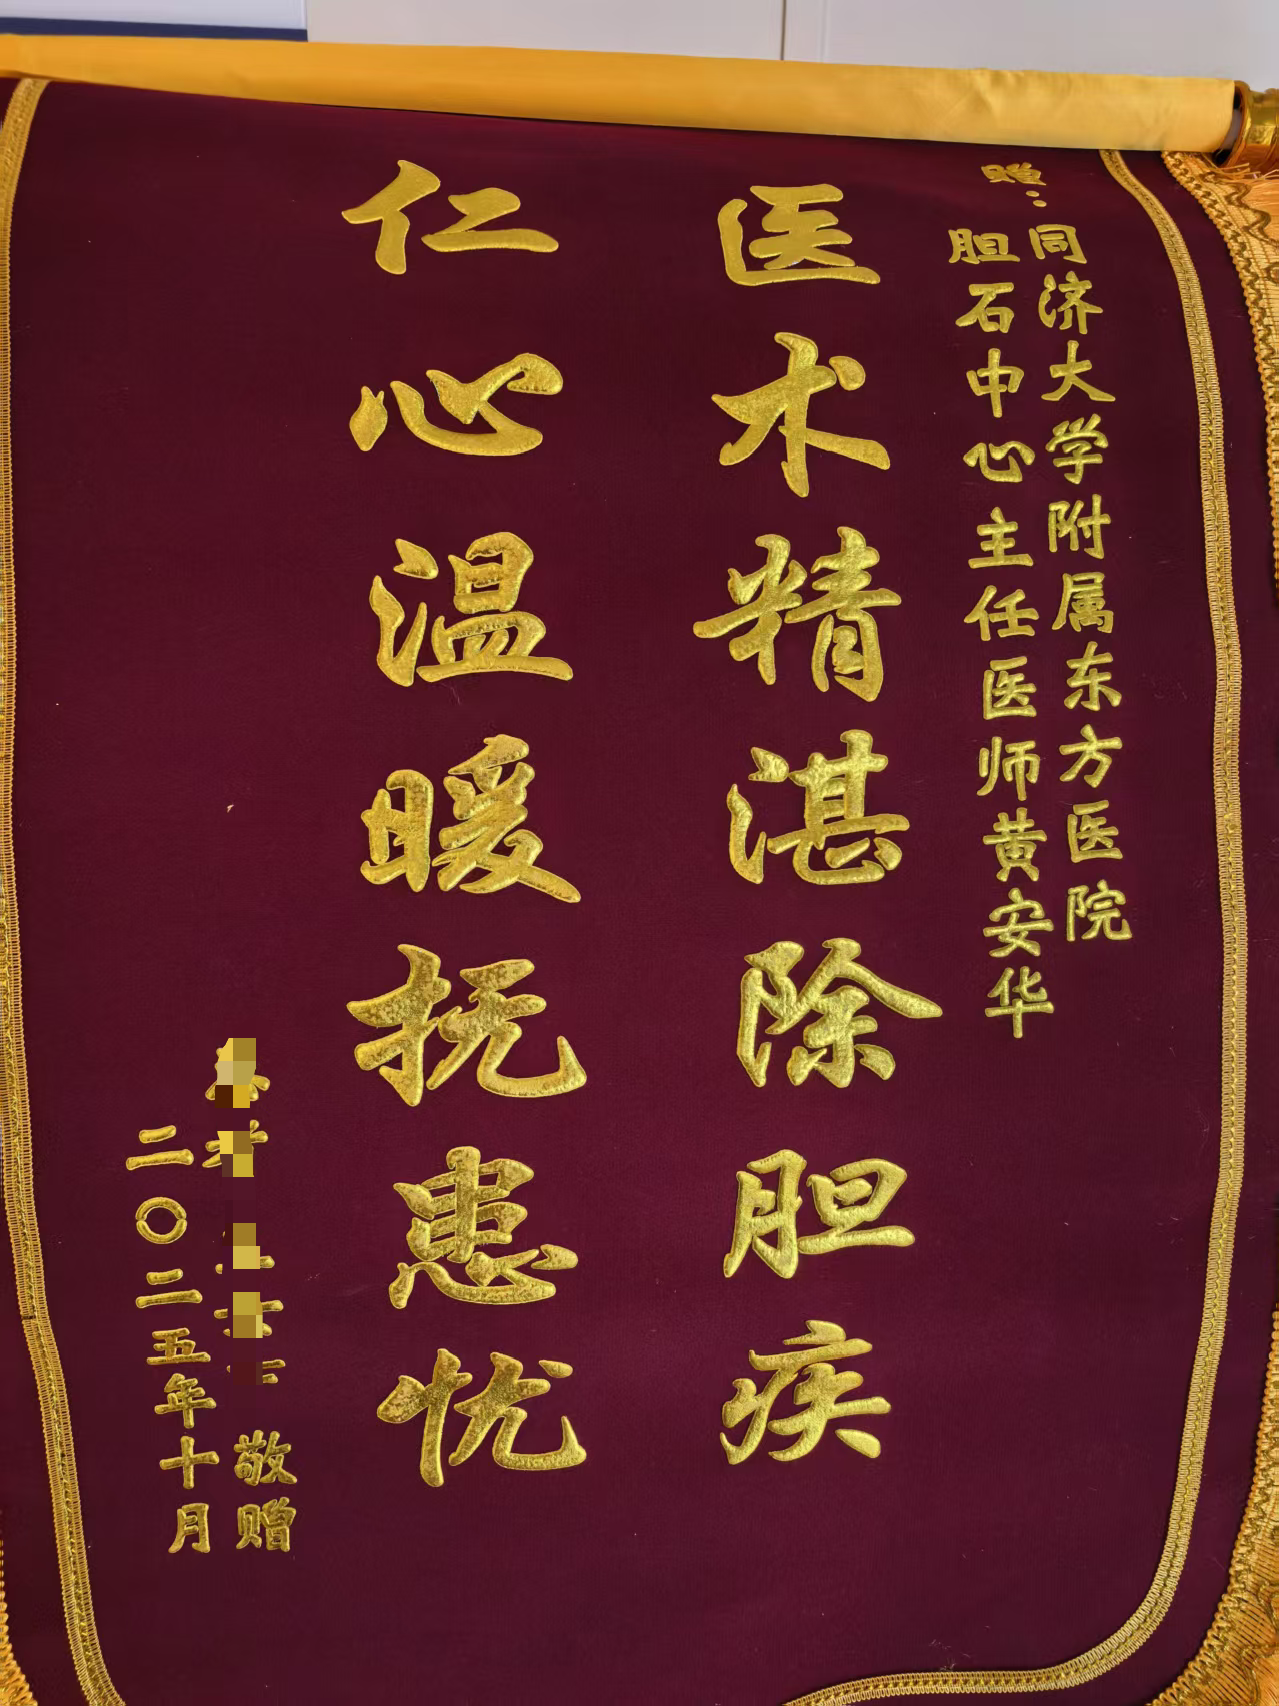 赠：同济大学附属东方医院
胆石中心主任医师黄安华
医术精湛除胆疾
仁心温暖抚患忧
敬赠
二〇二五年十月